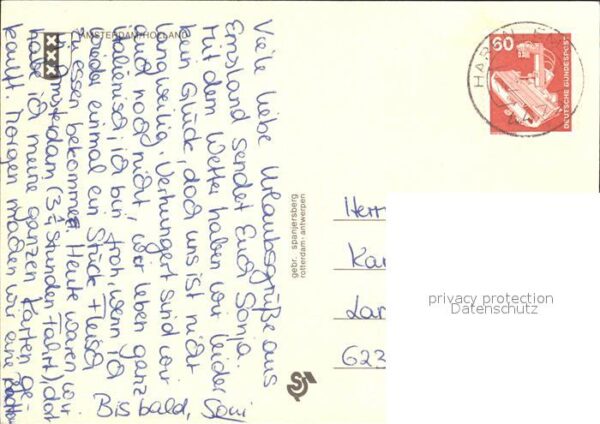 AMSTERDAM/HOLLAND
Viele liebe Urlaubsgrüße aus
Emsland sendet Euch Sonja.
Mit dem Wetter haben wir leider
kein Glück, doch uns ist nicht
langweilig. Verhungert sind wir
auch noch nicht, wir leben ganz
italienisch, ich bin froh, wenn ich
wieder einmal ein Stück Fleisch
zu essen bekomme. Heute waren wir
in Amsterdam (3½ Stunden Fahrt), dort
habe ich meine ganzen Karten ge-
kauft. Morgen machen wir eine
Bis bald, Soni
gebr. spanjersberg
rotterdam-antwerpen
60
DEUTSCHE BUNDESPOST
HAREN
Herr
Kar
Lar
623
privacy protection
Datenschutz